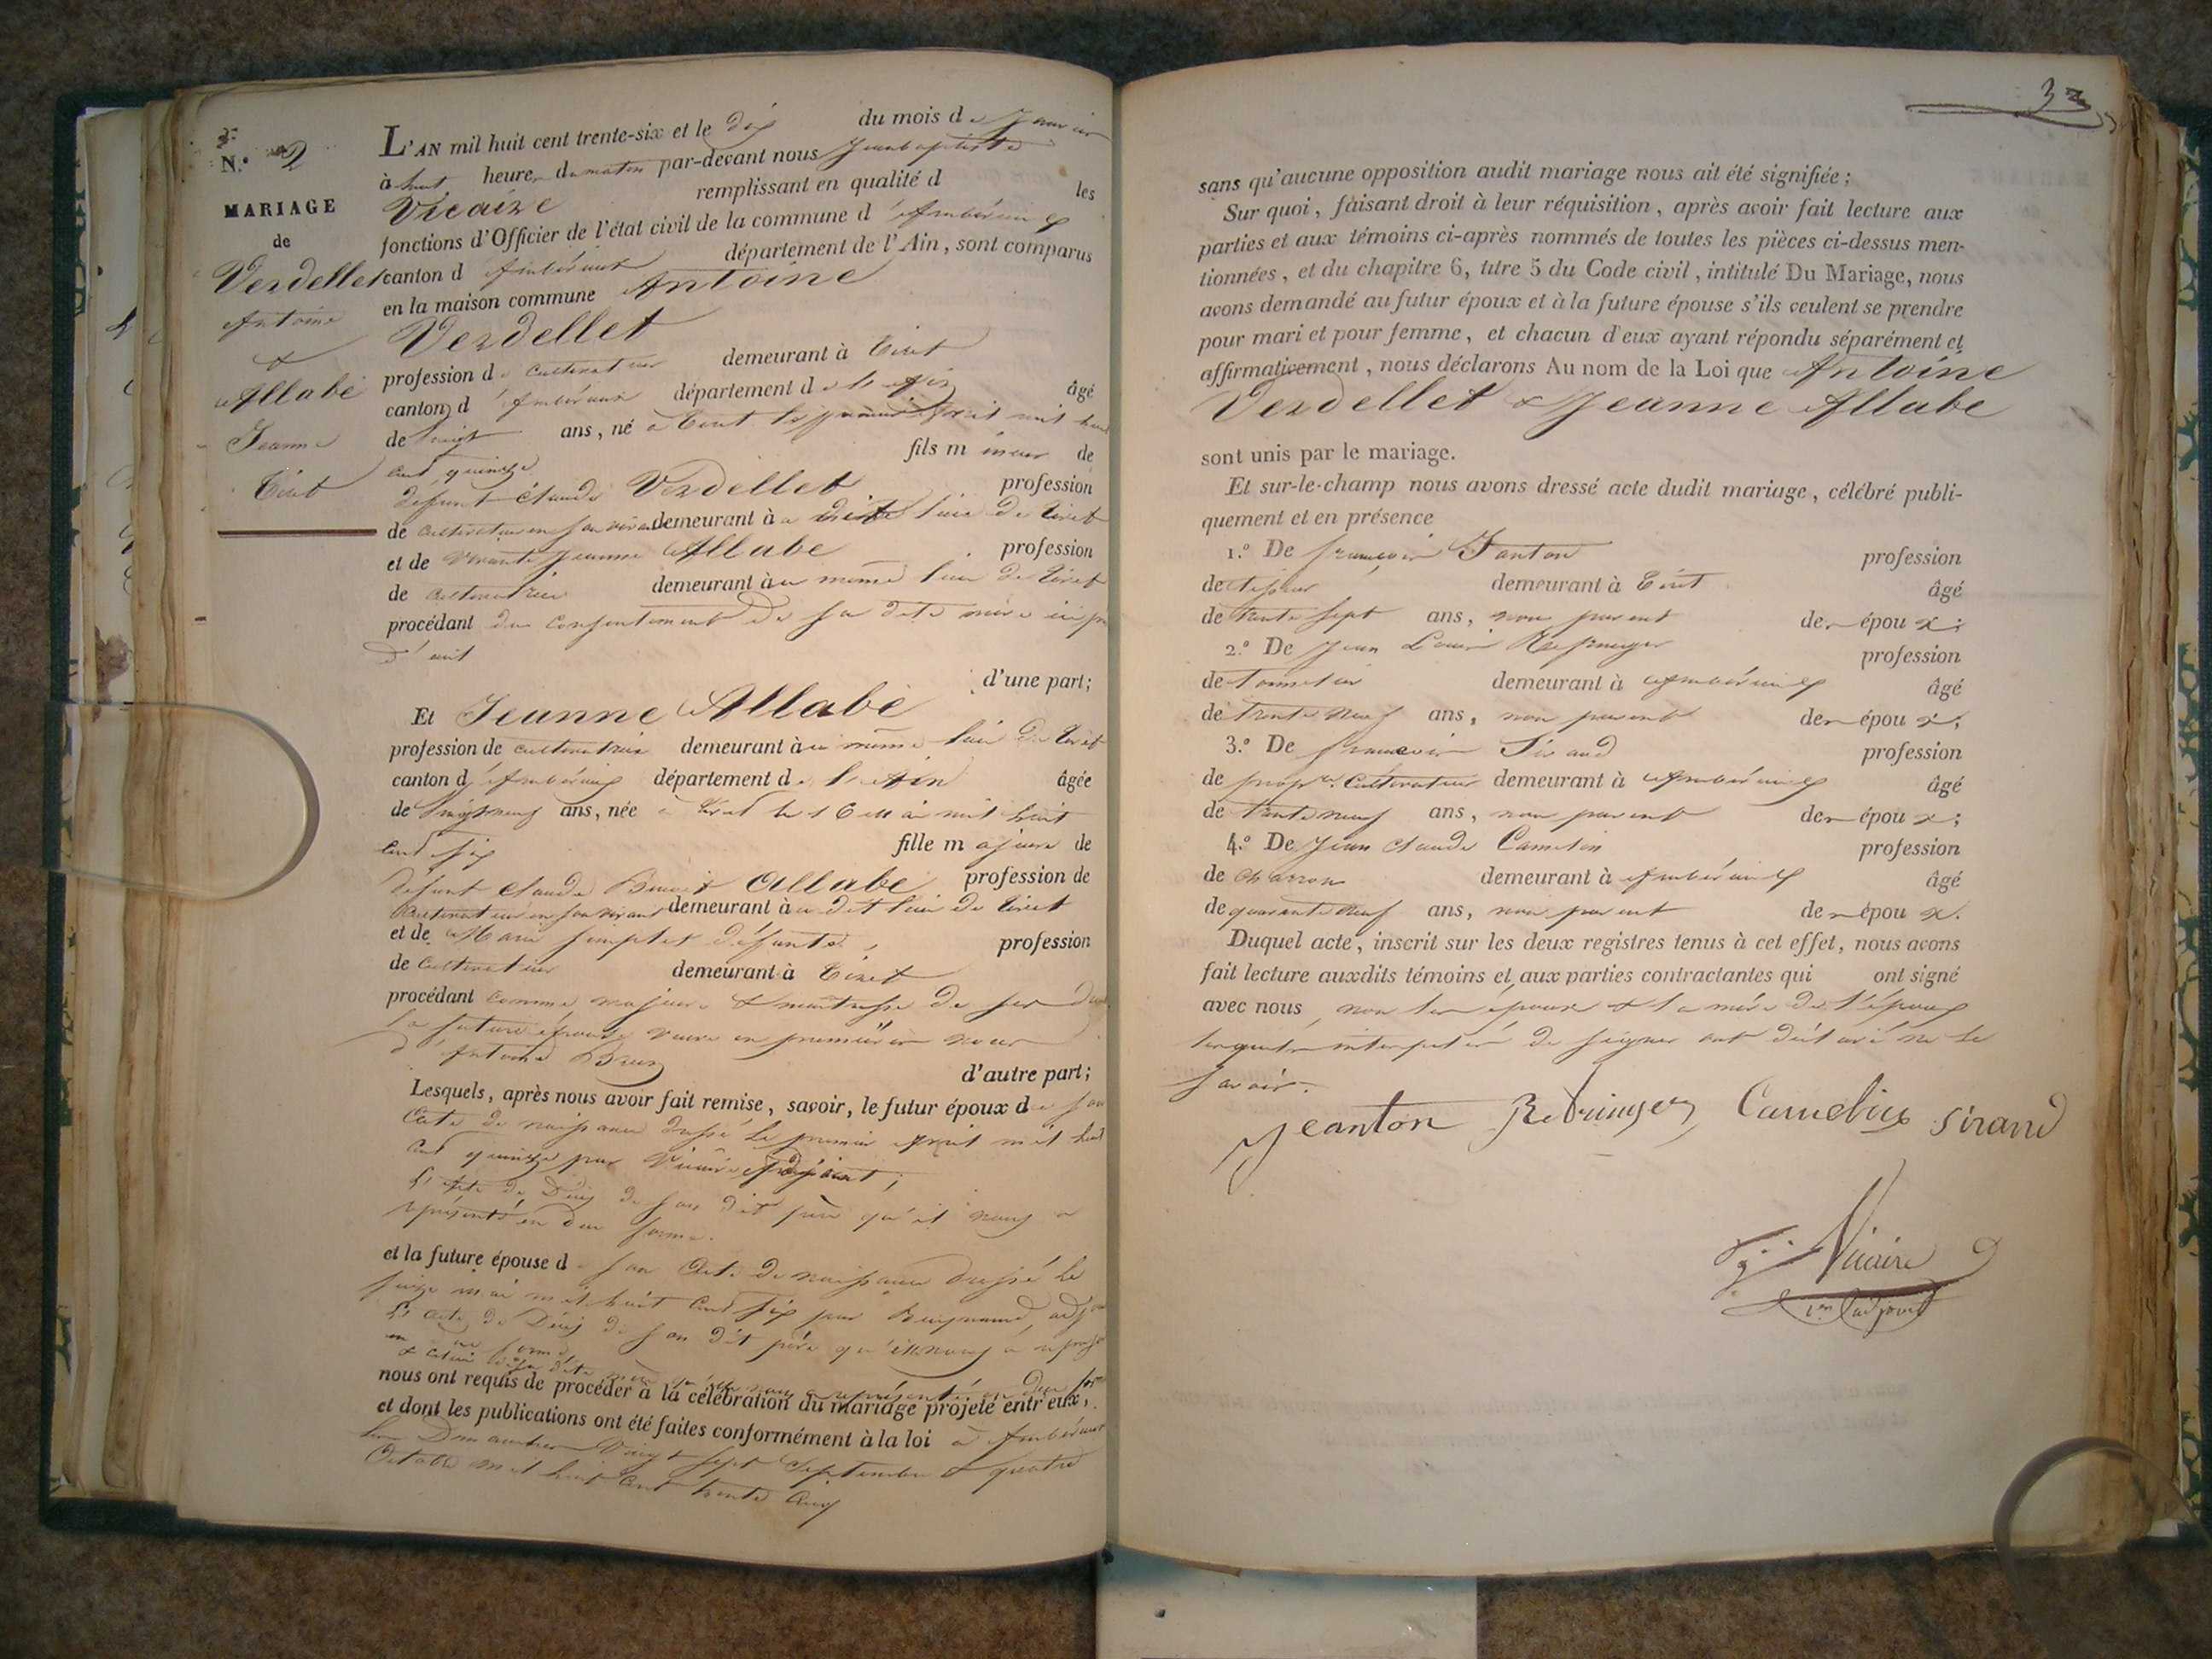 N.º 2
MARIAGE
de
Verdellet
Antoine
&
Allabé
Jeanne
Tiret
L'AN mil huit cent trente-six et le dix du mois de Janvier
à huit heures du matin par-devant nous Jeanbaptiste
Vicaire remplissant en qualité d les
fonctions d'Officier de l'état civil de la commune d'Ambérieux
canton d'Ambérieux département de l'Ain, sont comparus
en la maison commune Antoine
Verdellet
profession de cultivateur demeurant à Tiret
canton d'Ambérieux département de l'Ain âgé
de vingt ans, né à Tiret le premier avril mil huit
cent quinze fils mineur de
défunt Claude Verdellet profession
de cultivateur en son vivant demeurant à dit lieu de Tiret
et de vivante Jeanne Allabe profession
de cultivatrice demeurant au même lieu de Tiret
procédant du consentement de sa dite mère ici
d'une part;
Et Jeanne Allabé
profession de cultivatrice demeurant au même lieu de Tiret
canton d'Ambérieux département de l'Ain âgée
de vingt neuf ans, née à Tiret le 16 mai mil huit
cent six fille majeure de
défunt Claude Benoit Allabé profession de
cultivateur en son vivant demeurant au dit lieu de Tiret
et de Marie Simplet défunte, profession
de cultivateur demeurant à Tiret
procédant comme majeure & maitresse de ses
la future épouse veuve en premières noces
d'Antoine Brun
d'autre part;
Lesquels, après nous avoir fait remise, savoir, le futur époux de son
acte de naissance dressé le premier avril mil huit
cent quinze par Vicaire adjoint;
l'acte de décès de son dit père qu'il nous a
représenté en due forme.
et la future épouse d son acte de naissance dressé le
seize mai mil huit cent six par adj
l'acte de décès de son dit père qu'elle nous a
en due forme
& celui de sa dite mère qu'elle nous a représenté en due forme
nous ont requis de procéder à la célébration du mariage projeté entr'eux,
et dont les publications ont été faites conformément à la loi à Ambérieux
les Dimanches vingt sept septembre & quatre
octobre mil huit cent trente cinq
3
sans qu'aucune opposition audit mariage nous ait été signifiée;
Sur quoi, faisant droit à leur réquisition, après avoir fait lecture aux
parties et aux témoins ci-après nommés de toutes les pièces ci-dessus men-
tionnées, et du chapitre 6, titre 5 du Code civil, intitulé Du Mariage, nous
avons demandé au futur époux et à la future épouse s'ils veulent se prendre
pour mari et pour femme, et chacun d'eux ayant répondu séparément et
affirmativement, nous déclarons Au nom de la Loi que Antoine
Verdellet & Jeanne Allabe
sont unis par le mariage.
Et sur-le-champ nous avons dressé acte dudit mariage, célébré publi-
quement et en présence
1.º De françois Janton profession
de tisseur demeurant à Tiret âgé
de trente sept ans, non parent des époux;
2.º De Jean Louis profession
de tonnelier demeurant à Ambérieux âgé
de trente neuf ans, non parent des époux;
3.º De françois Sirand profession
de propre. Cultivateur demeurant à Ambérieux âgé
de trente neuf ans, non parent des époux;
4.º De Jean Claude Camelin profession
de charron demeurant à Ambérieux âgé
de quarante neuf ans, non parent des époux.
Duquel acte, inscrit sur les deux registres tenus à cet effet, nous avons
fait lecture auxdits témoins et aux parties contractantes qui ont signé
avec nous, non les époux & la mère de l'époux
lesquels interpelés de signer ont déclaré ne le
savoir.
Jeanton Camelin Sirand
Vicaire
1er adjoint